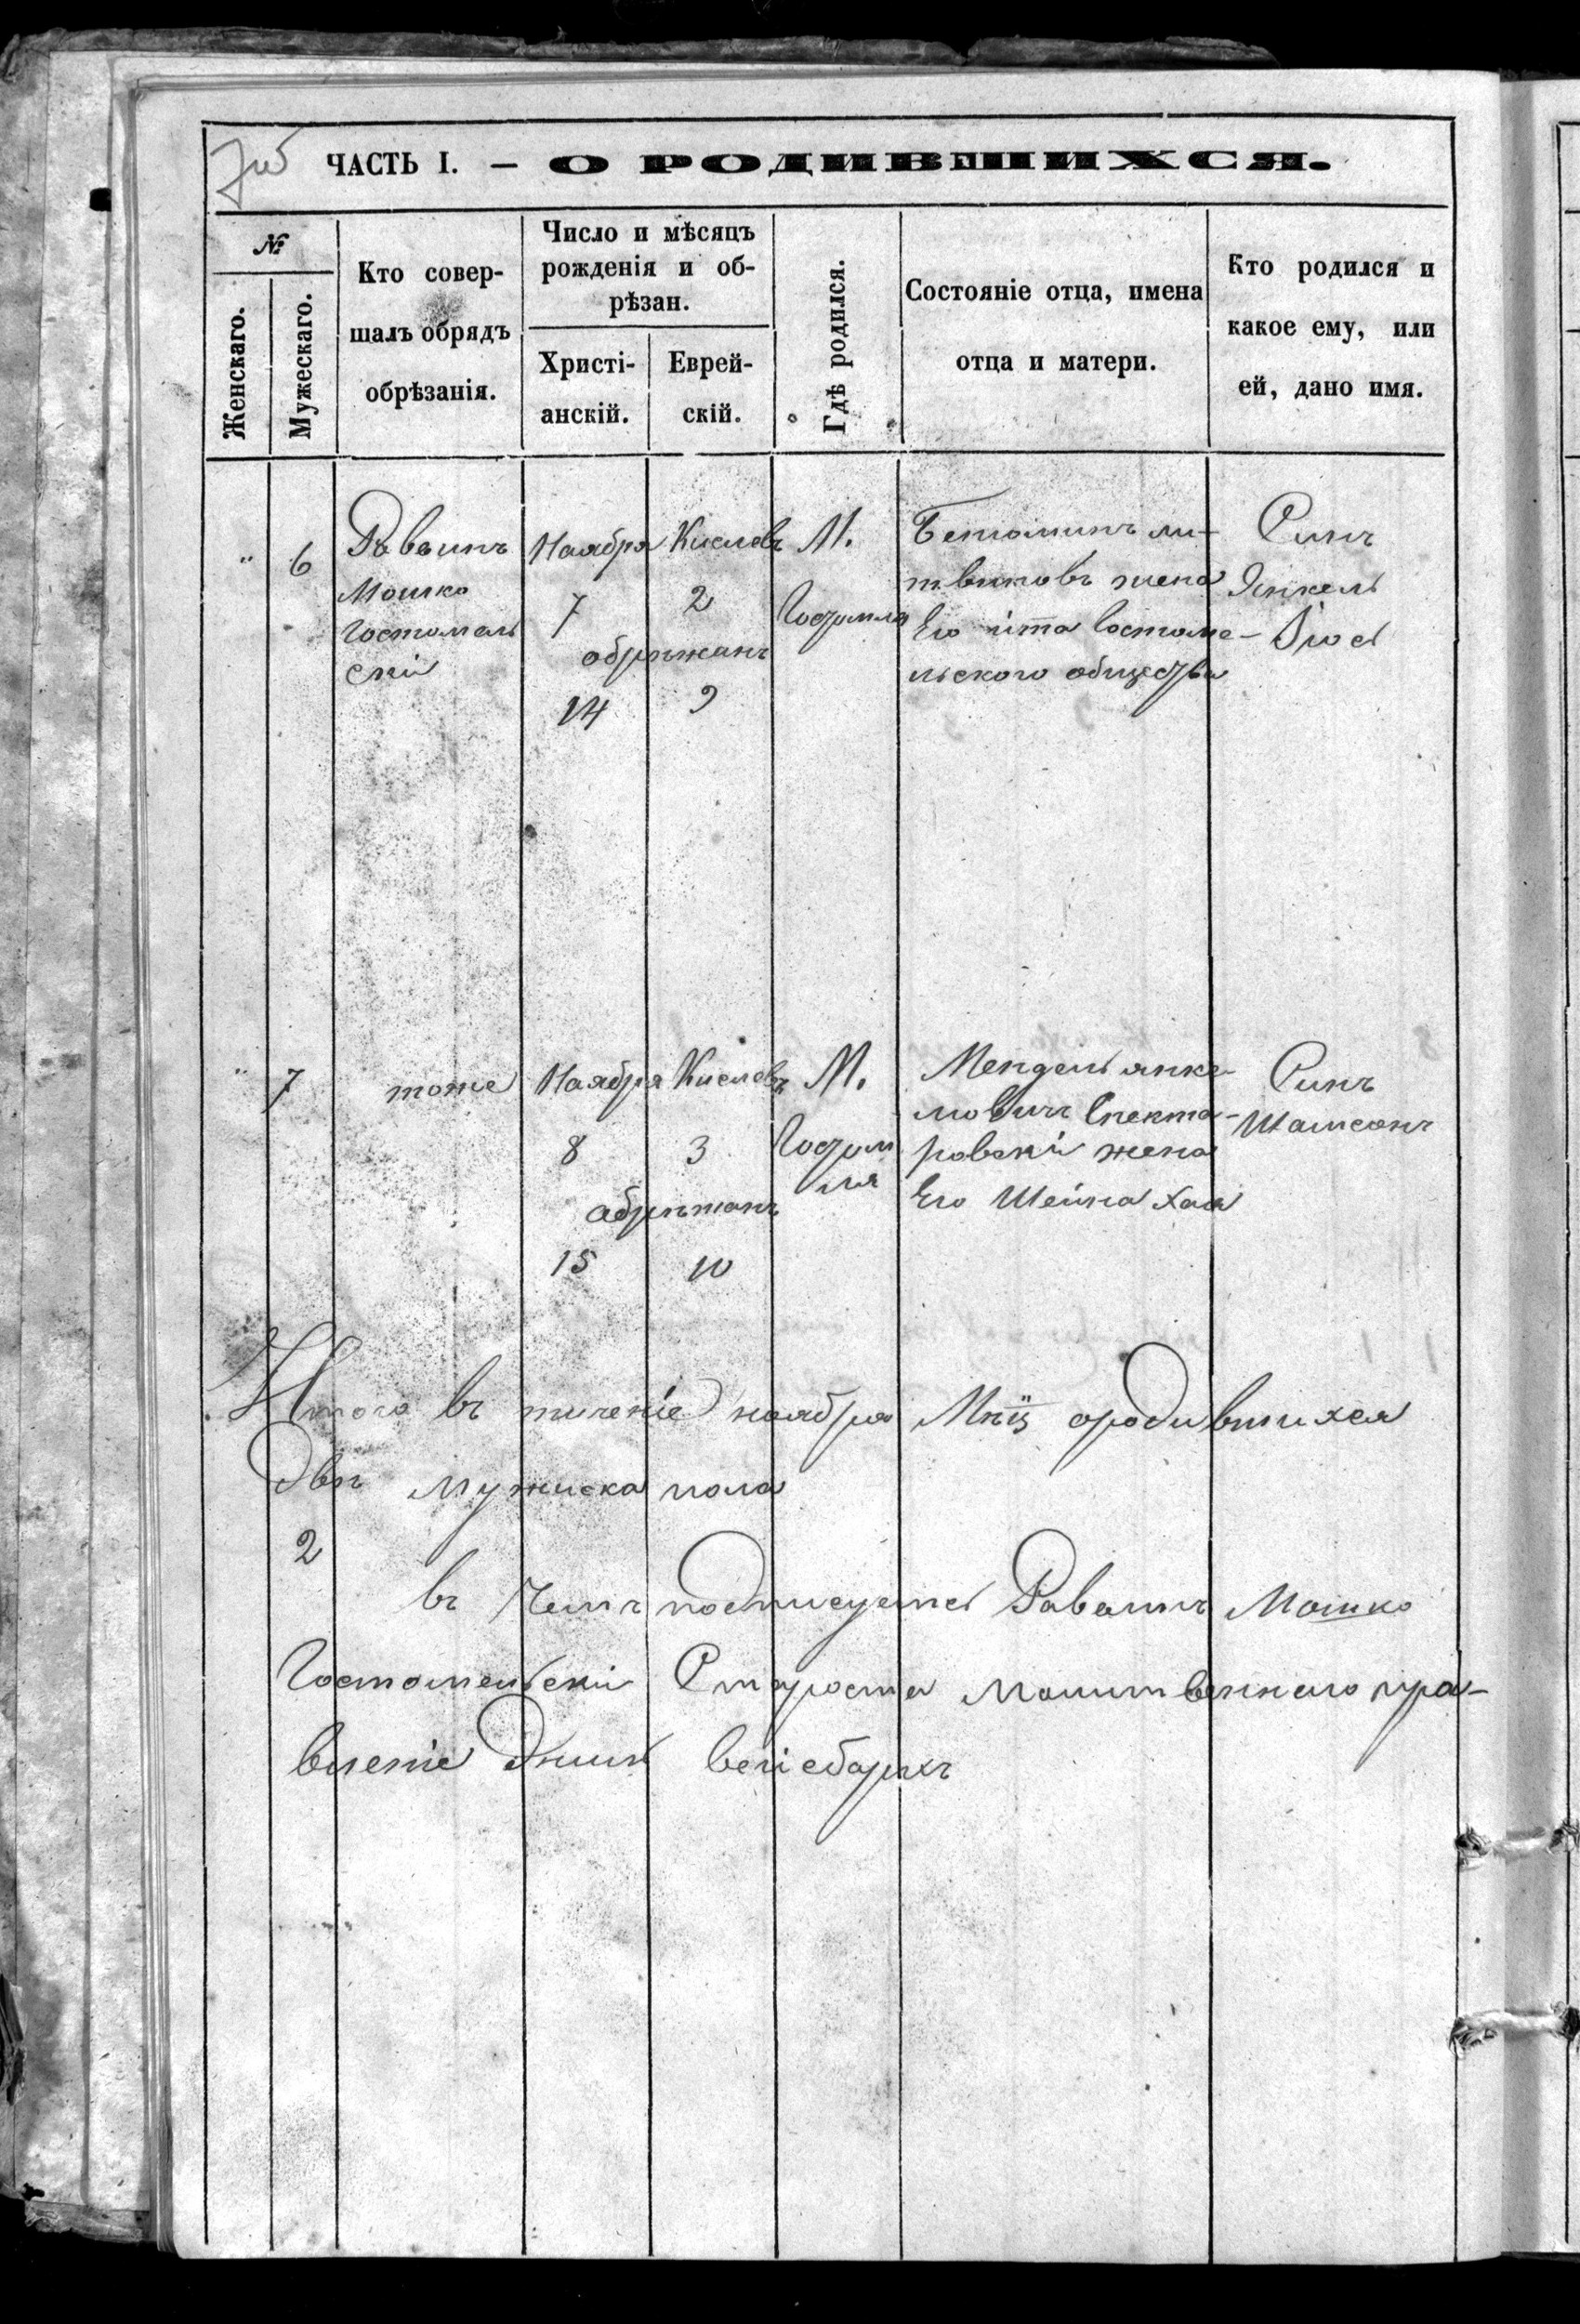 ЧАСТЬ I. – О РОДИВШИХСЯ.
№
Женскаго.
Мужескаго.
Кто совер-
шалъ обрядъ
обрѣзанія.
Число и мѣсяцъ
рожденія и об-
рѣзан.
Христі-
анскій.
Еврей-
скій.
Гдѣ родился.
Состояніе отца, имена
отца и матери.
Кто родился и
какое ему, или
ей, дано имя.
" 6
Раввинъ
Мошко
Гостомель
скій
Ноября
7
Кислевъ
2
обрѣжанъ
14
9
М.
Гостомля
Бениоминъ ли-
твиновъ жена
Его ита Гостоме-
льского общества
Синъ
Янкель
Іось
" 7
тоже
Ноября
8
Кислевъ
3
абрѣжанъ
15
10
М.
Гостом
ля
Мендель янке-
левичъ Спекто-
ровскій жена
Его Шейна Хая
Синъ
Шамсонъ
Итого въ тиченіе ноября Мѣц ородившихся
Двѣ мужиска пола
2
въ Чемъ подписуемсь Раввинъ Мошко
Гостомельскій Староста Молитвенного пра-
вленіе